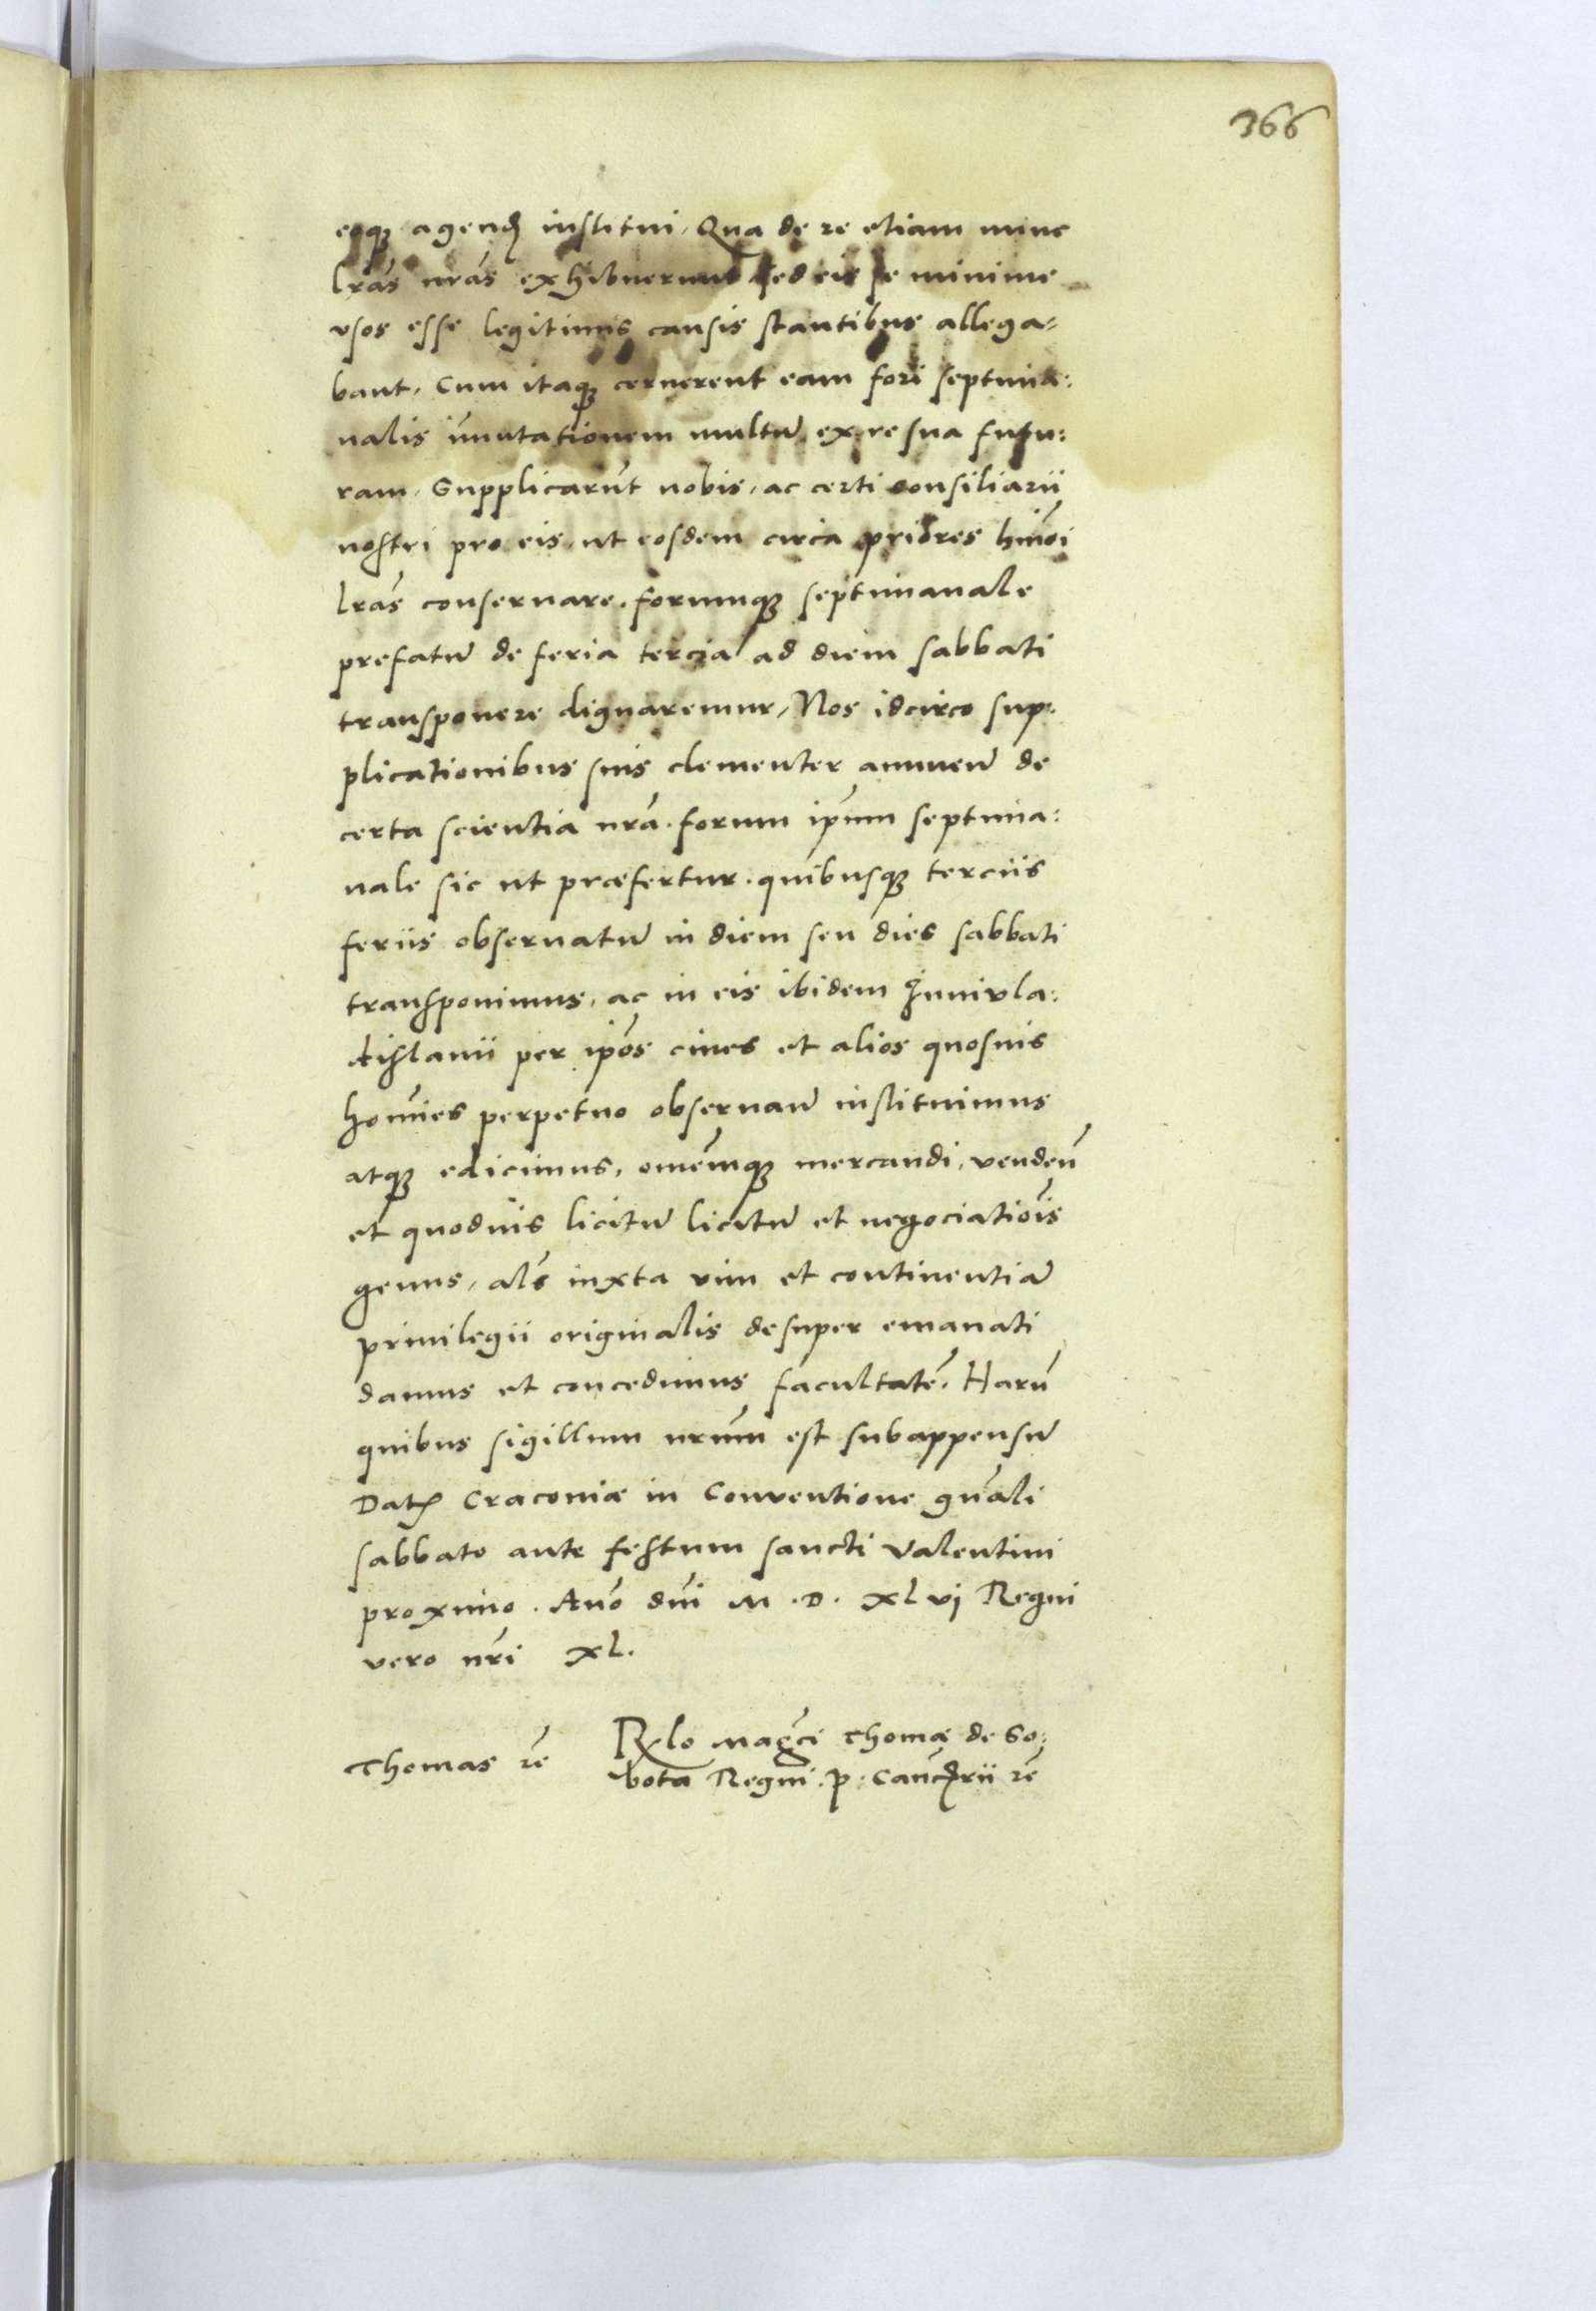 366
eoque agend institui. Qua de re etiam nunc
lras nras exhibuerunt sed eis se minime
usos esse legitimis causis stantibus allega=
bant. Cum itaque cernerent eam fori septima:
nalis imutationem multum ex re sua futu:
ram. Supplicarunt nobis, ac certi consiliarii
nostri pro eis, ut eosdem circa priores hmoi
lras conservare, forumque septimanale
prefatum de feria tercia ad diem sabbati
transponere dignaremur, Nos idcirco sup:
plicationibus suis clementer annuen de
certa scientia nra. forum ipsum septima:
nale sic ut præfertur. quibusque terciis
feriis observatum in diem seu dies sabbati
transponimus, ac in eis ibidem Junivla:
dislavii per ipos cives et alios quosvis
homies perpetuo observan instituimus
atque edicimus, omemque mercandi, venden
et quodvis licitum licitum et negociatiois
genus, als iuxta vim et continentiam
privilegii originalis desuper emanati
damus et concedimus facultate. Harum
quibus sigillum nrum est subappensum
Dat Cracoviæ in Conventione gnali
sabbato ante festum sancti Valentini
proximo. Anno dni M.D. XLvj Regni
vero nri XL.
Thomas re
Rlo Magci Thomæ de So:
bota Regni. p. Cancrii re